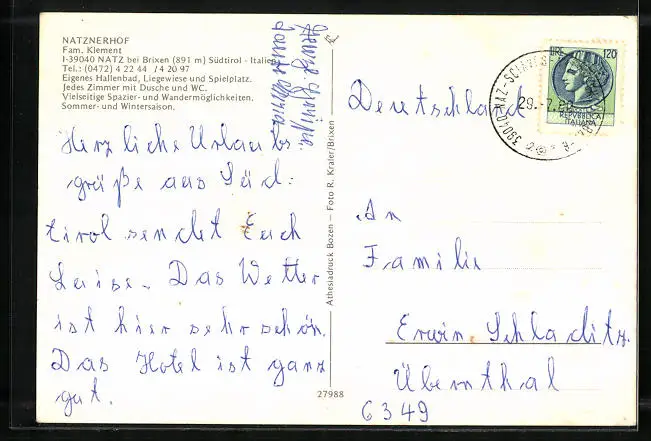 NATZNERHOF
Fam. Klement
I-39040 NATZ bei Brixen (891 m) Südtirol - Italien
Tel.: (0472) 4 22 44 / 4 20 97
Eigenes Hallenbad, Liegewiese und Spielplatz.
Jedes Zimmer mit Dusche und WC.
Vielseitige Spazier- und Wandermöglichkeiten.
Sommer- und Wintersaison.
Herzliche Urlaubs
grüße aus Süd:
tirol sendet Euch
Luise. Das Wetter
ist hier sehr schön.
Das Hotel ist ganz
gut.
Athesiadruck Bozen – Foto R. Krafer/Brixen
27988
LIRE 120
REPVBBLICA
ITALIANA
39040 NAZ-SCIAVES
29.-7.
Deutschland
An
Familie
Erwin Schladitz.
Übernthal
6349